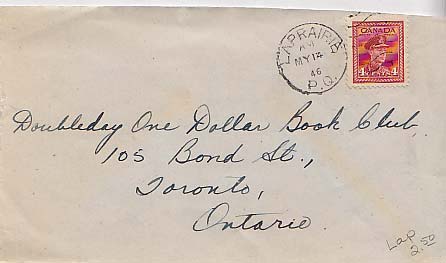 LAPRAIRIE
AM
MY 14
46
P.Q.
CANADA
4 4
Doubleday One Dollar Book Club.
105 Bond St.,
Toronto,
Ontario.
Lap
2.50